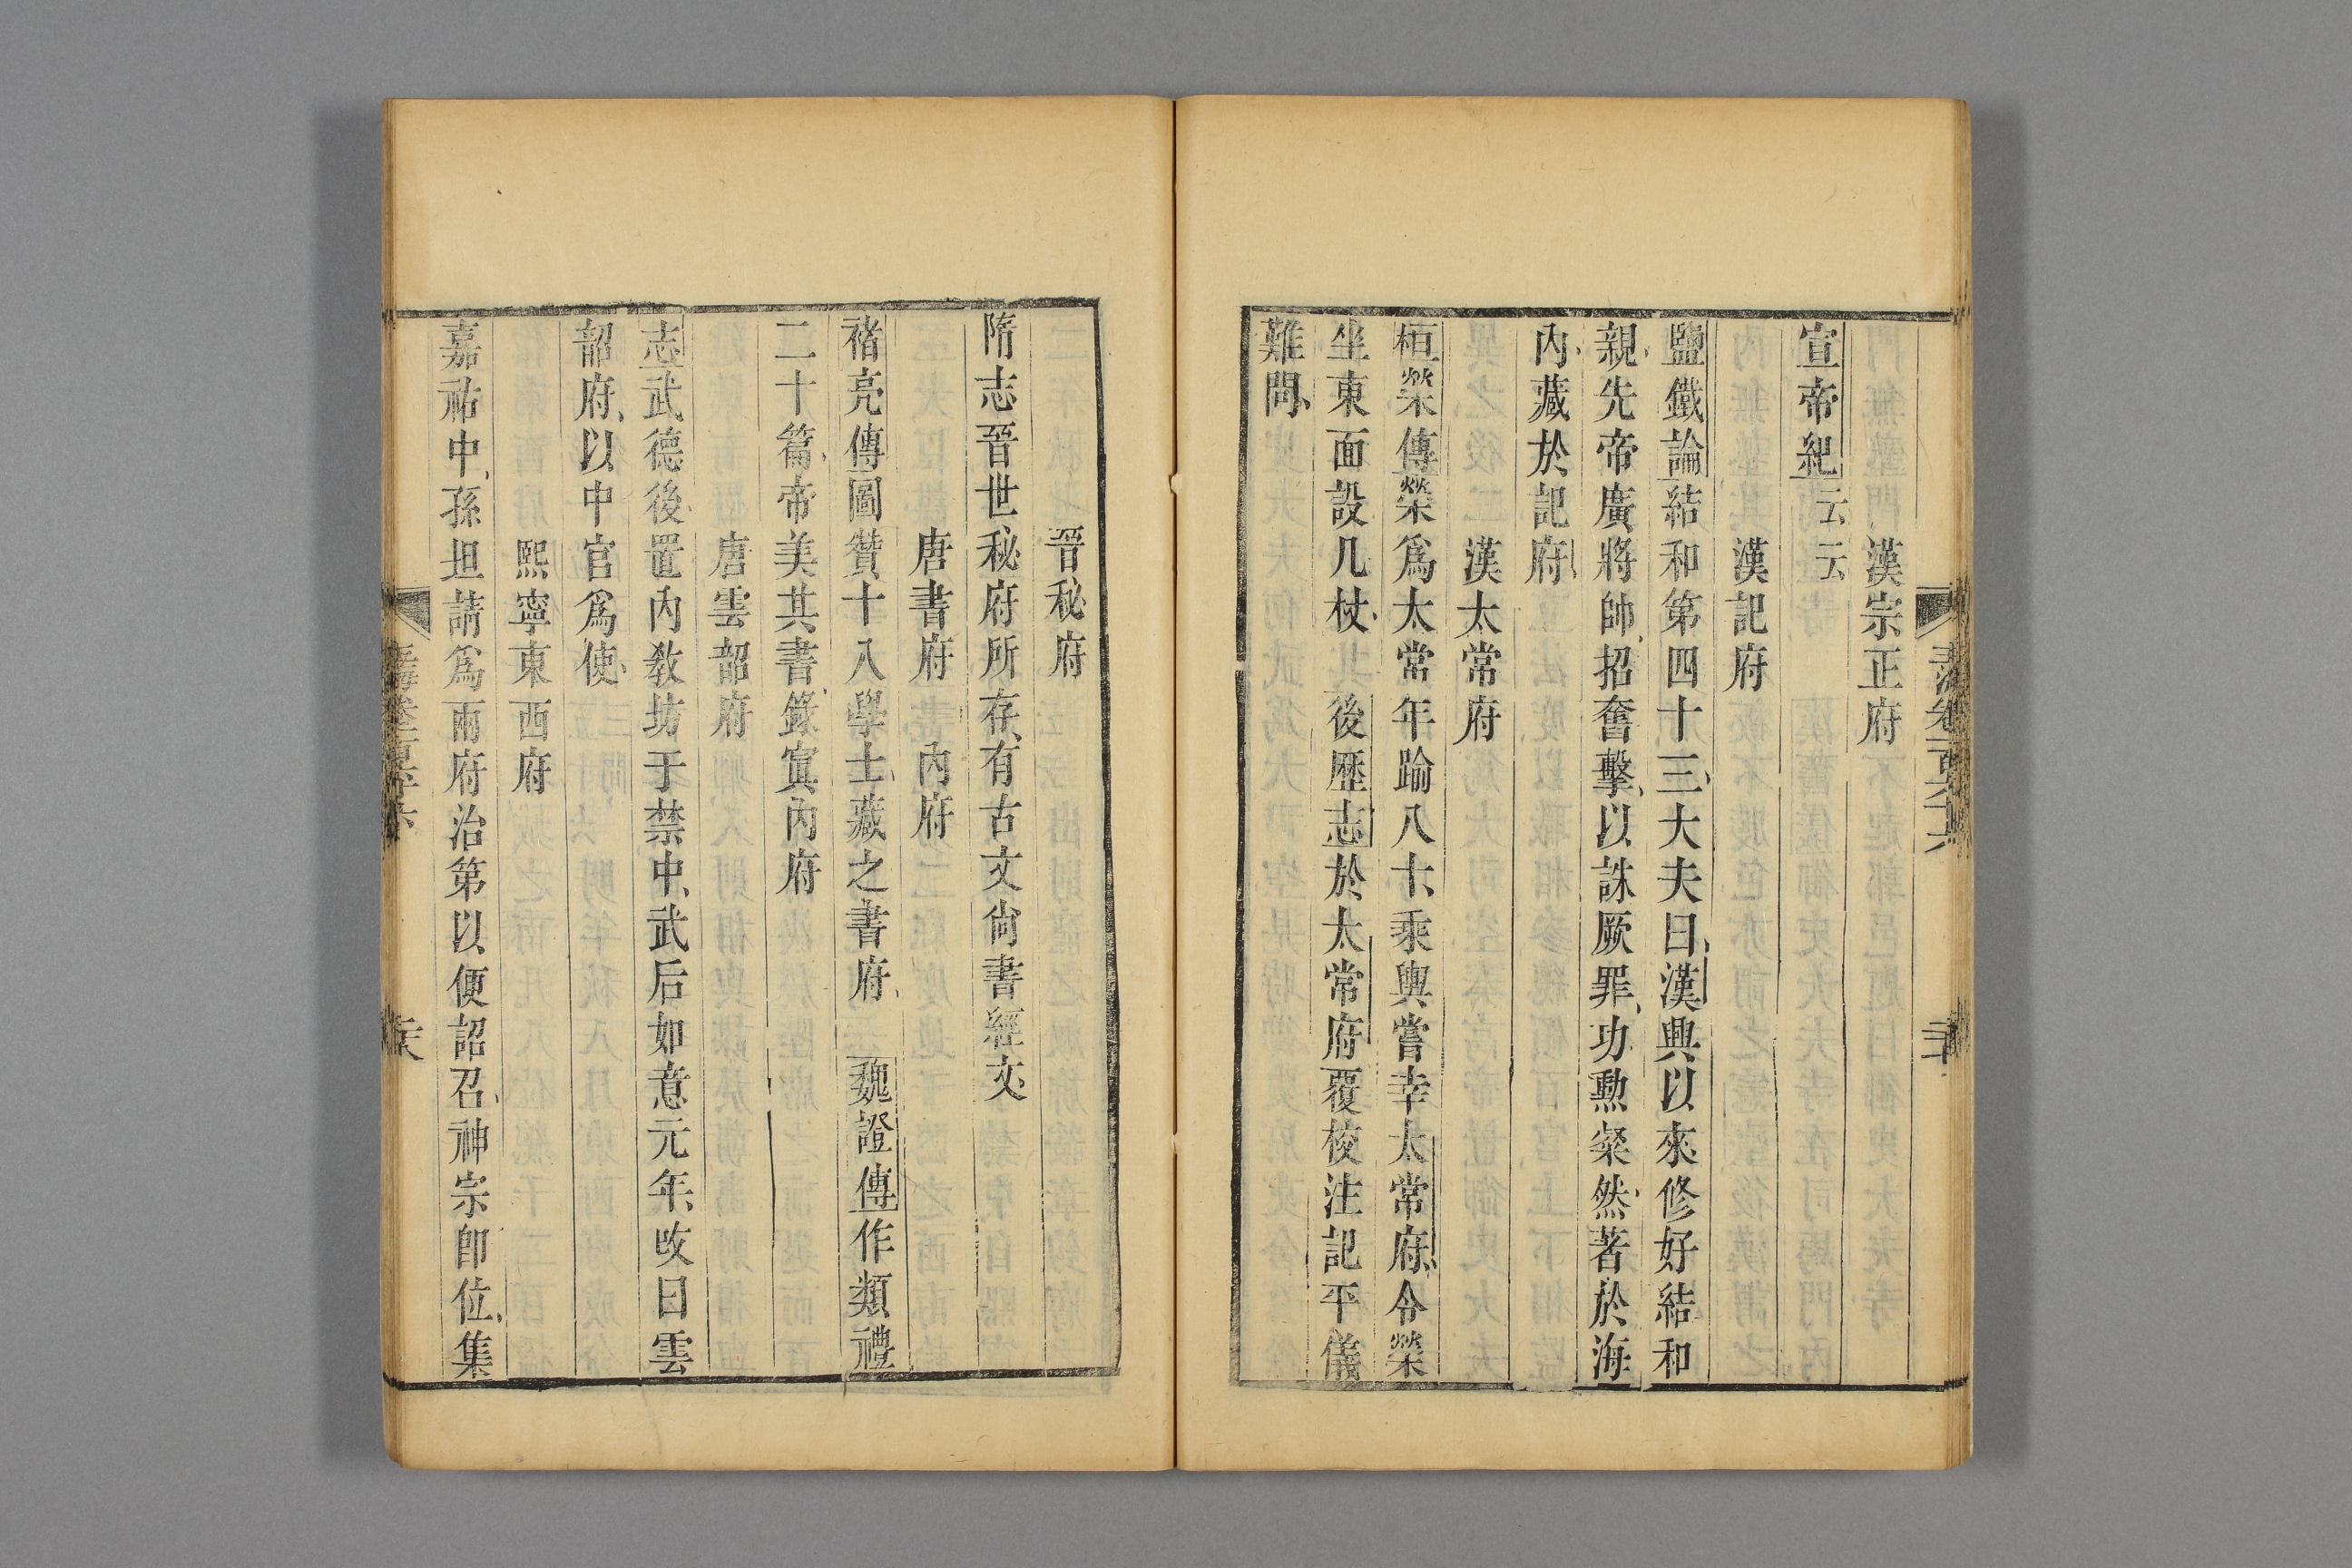 漢宗正府
宣帝紀云云
漢記府
鹽鐵論結和第四十三大夫曰漢興以來修好結和
親先帝廣將帥招奮擊以誅厥罪功勳粲然著於海
內藏於記府
漢太常府
桓榮傳榮爲太常年踰八十乘輿嘗幸太常府令榮
坐東面設几杖 後歷志於太常府覆校注記平儀
難問
晉秘府
隋志晉世秘府所存有古文尚書經文
唐書府 內府
褚亮傳圖贊十八學士藏之書府 魏證傳作類禮
二十篇帝美其書錄寘內府
唐雲韶府
志武德後置內敎坊于禁中武后如意元年改曰雲
韶府以中官爲使
熙寧東西府
嘉祐中孫坦請爲兩府治第以便詔召神宗卽位集